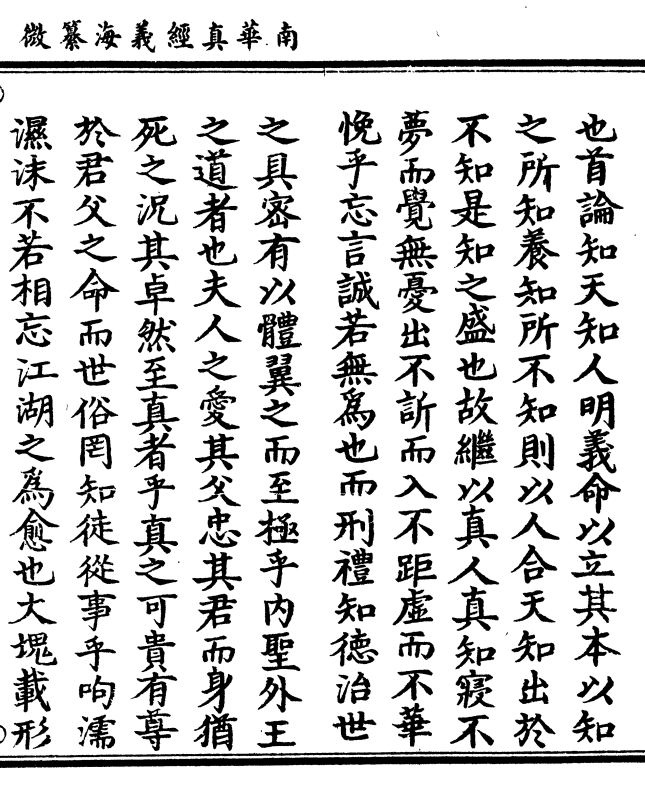 南華真經義海纂微
也首論知天知人明義命以立其本以知
之所知養知所不知則以人合天知出於
不知是知之盛也故繼以真人真知寢不
夢而覺無憂出不訢而入不距虛而不華
悗乎忘言誠若無爲也而刑禮知德治世
之具密有以體翼之而至極乎內聖外王
之道者也夫人之愛其父忠其君而身猶
死之況其卓然至真者乎真之可貴有尊
於君父之命而世俗罔知徒從事乎呴濡
濕沫不若相忘江湖之爲愈也大塊載形